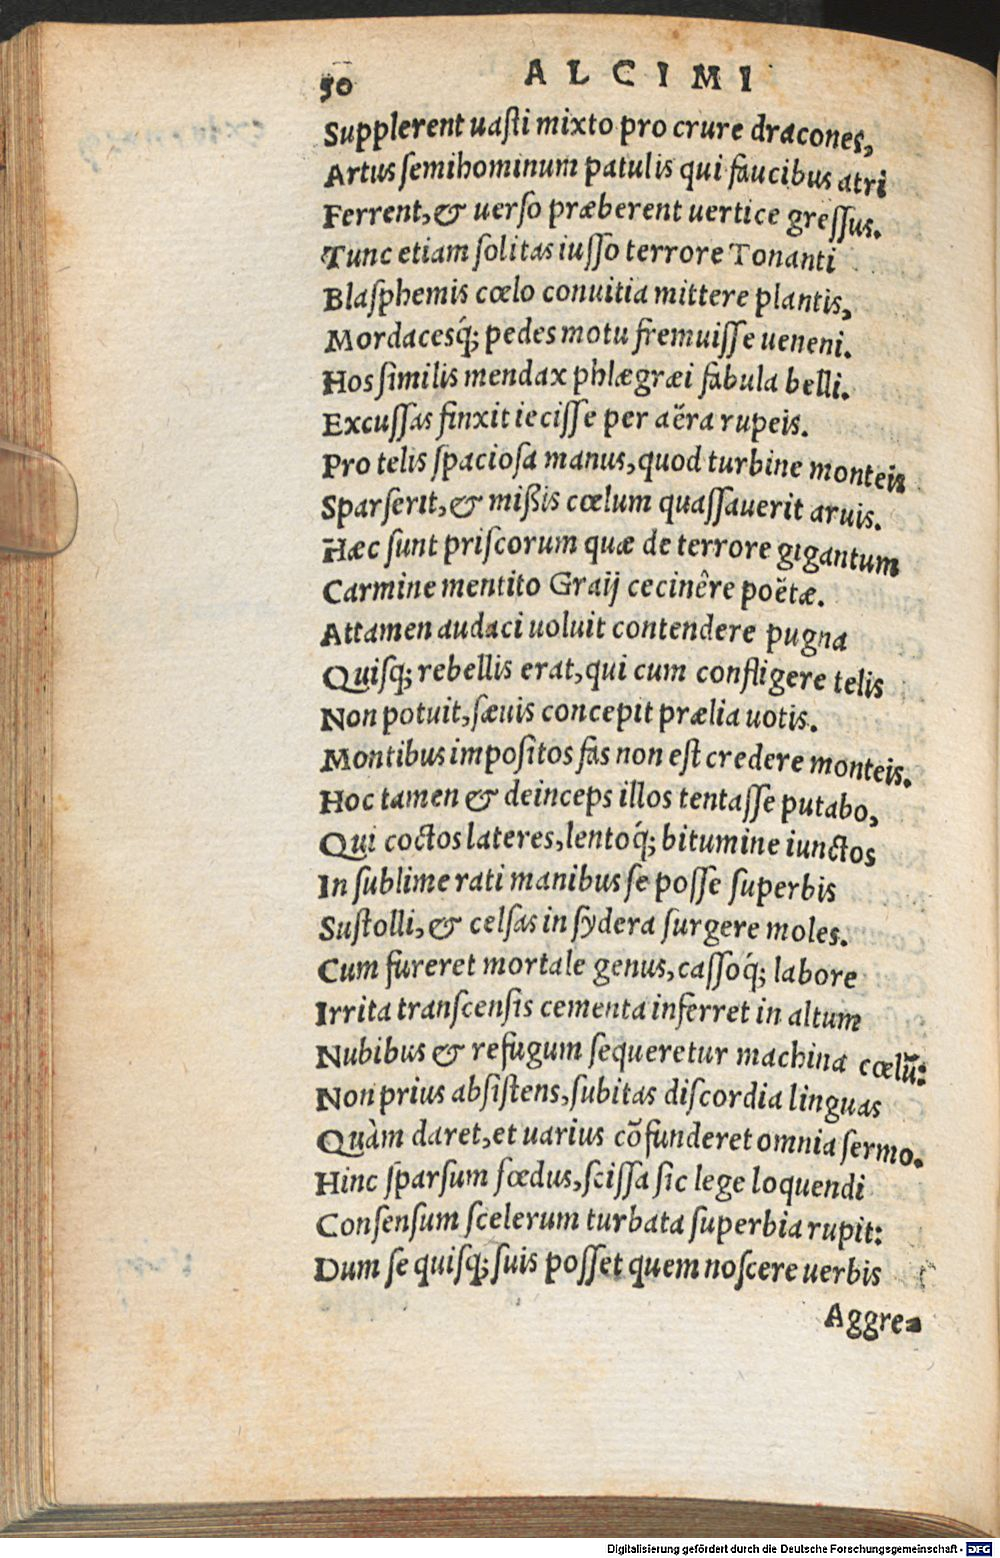 50 ALCIMI
Supplerent uasti mixto pro crure dracones,
Artus semihominum patulis qui faucibus atri
Ferrent, & uerso præberent uertice gressus.
Tunc etiam solitas iusso terrore Tonanti
Blasphemis cœlo conuitia mittere plantis,
Mordacesq́; pedes motu fremuisse ueneni.
Hos similis mendax phlægræi fabula belli.
Excussas finxit iecisse per aëra rupeis.
Pro telis spaciosa manus, quod turbine monteis
Sparserit, & mißis cœlum quassauerit aruis.
Hæc sunt priscorum quæ de terrore gigantum
Carmine mentito Graij cecinêre poëtæ.
Attamen audaci uoluit contendere pugna
Quisq; rebellis erat, qui cum confligere telis
Non potuit, sæuis concepit prælia uotis.
Montibus impositos fas non est credere monteis.
Hoc tamen & deinceps illos tentasse putabo,
Qui coctos lateres, lentoq́; bitumine iunctos
In sublime rati manibus se posse superbis
Sustolli, & celsas in sydera surgere moles.
Cum fureret mortale genus, cassoq́; labore
Irrita transcensis cementa inferret in altum
Nubibus & refugum sequeretur machina cœlũ:
Non prius absistens, subitas discordia linguas
Quàm daret, et uarius cõfunderet omnia sermo.
Hinc sparsum fœdus, scissa sic lege loquendi
Consensum scelerum turbata superbia rupit:
Dum se quisq; suis posset quem noscere uerbis
Aggre-
Digitalisierung gefördert durch die Deutsche Forschungsgemeinschaft - DFG